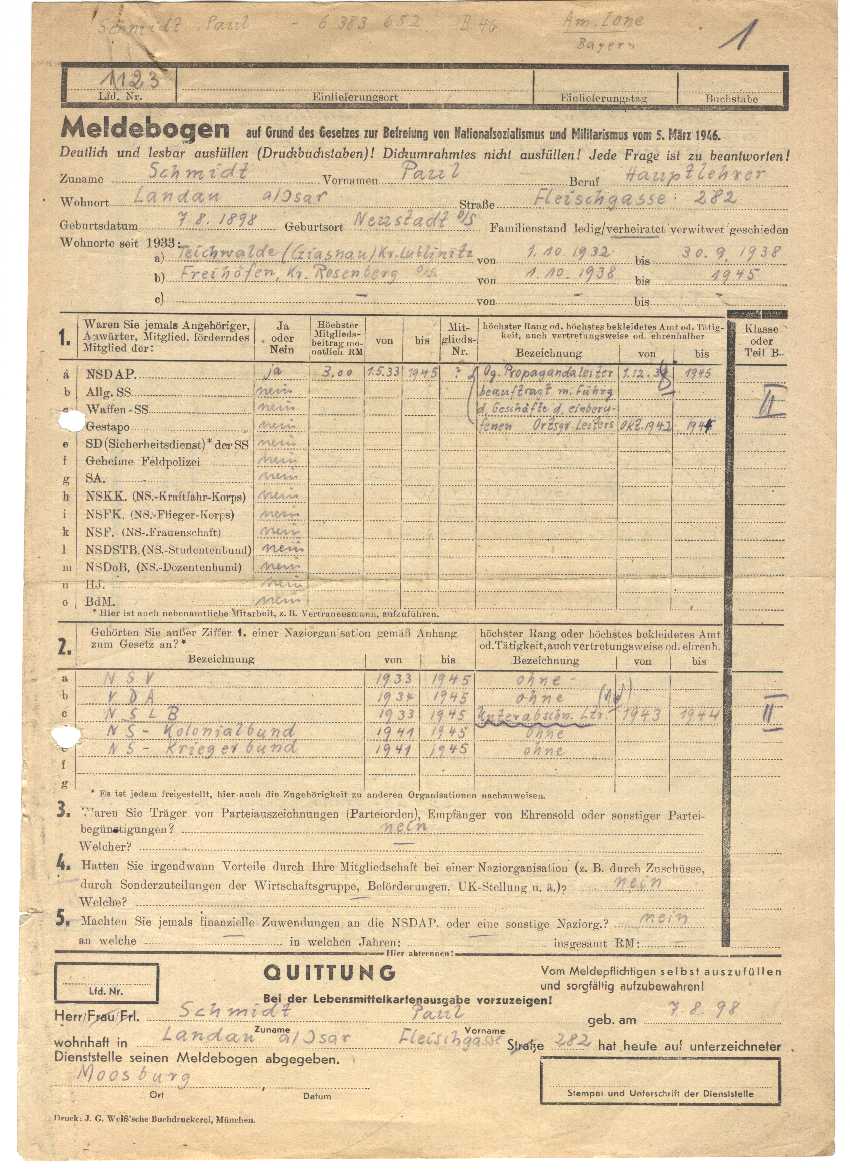 Schmidt Paul - 6 383 652 B 46 Am. Zone
Bayern 1
1123
Lfd. Nr. Einlieferungsort Einlieferungstag Buchstabe
Meldebogen auf Grund des Gesetzes zur Befreiung von Nationalsozialismus und Militarismus vom 5. März 1946.
Deutlich und lesbar ausfüllen (Druckbuchstaben)! Dickumrahmtes nicht ausfüllen! Jede Frage ist zu beantworten!
Zuname Schmidt Vornamen Paul Beruf Hauptlehrer
Wohnort Landau a/Isar Straße Fleischgasse 282
Geburtsdatum 7.8.1898 Geburtsort Neustadt O/S Familienstand ledig/verheiratet verwitwet geschieden
Wohnorte seit 1933:
a) Teichwalde Kr. Lublinitz von 1.10.1932 bis 30.9.1938
b) Freihöfen, Kr. Rosenberg O/S. von 1.10.1938 bis 1945
c) – von – bis –
1. Waren Sie jemals Angehöriger, Anwärter, Mitglied, förderndes Mitglied der: Ja oder Nein Höchster Mitgliedsbeitrag monatlich RM von bis Mitglieds-Nr. höchster Rang od. höchstes bekleidetes Amt od. Tätigkeit, auch vertretungsweise od. ehrenhalber Klasse oder Teil B
Bezeichnung von bis
a NSDAP. ja 3,00 1.5.33 1945 ? Og. Propagandaleiter 1.12. 1945
b Allg. SS nein beauftragt m. Führg
c Waffen-SS nein d. Geschäfte d. einberu- II
Gestapo nein fenen Ortsgr Leiters Okt. 1942 194
e SD (Sicherheitsdienst)* der SS nein
f Geheime Feldpolizei nein
g SA. nein
h NSKK. (NS.-Kraftfahr-Korps) nein
i NSFK. (NS.-Flieger-Korps) nein
k NSF. (NS-.Frauenschaft) nein
l NSDSTB. (NS.-Studentenbund) nein
m NSDoB. (NS.-Dozentenbund) nein
n HJ. nein
o BdM. nein
* Hier ist auch nebenamtliche Mitarbeit, z. B. Vertrauensmann, aufzuführen.
2. Gehörten Sie außer Ziffer 1. einer Naziorganisation gemäß Anhang zum Gesetz an?* höchster Rang oder höchstes bekleidetes Amt od. Tätigkeit, auch vertretungsweise od. ehrenh.
Bezeichnung von bis Bezeichnung von bis
a NSV 1933 1945 ohne
b VDA 1934 1945 ohne
c NSLB 1933 1945 Unterabschn. Ltr. 1943 1944 II
NS - Kolonialbund 1941 1945 ohne
e NS - Kriegerbund 1941 1945 ohne
f
g
* Es ist jedem freigestellt, hier auch die Zugehörigkeit zu anderen Organisationen nachzuweisen.
3. Waren Sie Träger von Parteiauszeichnungen (Parteiorden), Empfänger von Ehrensold oder sonstiger Partei-
begünstigungen? nein
Welcher? –
4. Hatten Sie irgendwann Vorteile durch Ihre Mitgliedschaft bei einer Naziorganisation (z. B. durch Zuschüsse,
durch Sonderzuteilungen der Wirtschaftsgruppe, Beförderungen, UK-Stellung u. ä.)? nein
Welche? –
5. Machten Sie jemals finanzielle Zuwendungen an die NSDAP. oder eine sonstige Naziorg.? nein
an welche – in welchen Jahren: – insgesamt RM: –
Hier abtrennen!
Lfd. Nr. QUITTUNG Vom Meldepflichtigen selbst auszufüllen
und sorgfältig aufzubewahren!
Bei der Lebensmittelkartenausgabe vorzuzeigen!
Herr Frau Frl. Schmidt Paul geb. am 7.8.98
Zuname Vorname
wohnhaft in Landau a/Isar Fleischgasse Straße 282 hat heute auf unterzeichneter
Dienststelle seinen Meldebogen abgegeben.
Moosburg
Ort Datum Stempel und Unterschrift der Dienststelle
Druck: J. G. Weiß'sche Buchdruckerei, München.